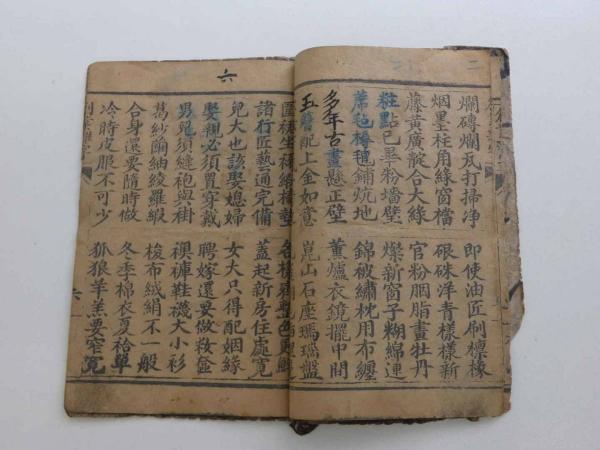 二
爛磚爛瓦打掃净 即使油匠刷檁椽
烟墨柱角緣窗檔 硍硃洋青樣樣新
藤黃廣靛合大緣 官粉胭脂畫牡丹
粧點已畢粉墻壁 燦新窗子糊綿連
毡鋪炕地 錦被繡枕用布纏
多年古畫懸正壁 薰爐衣鏡擺中間
玉簪配上金如意 崑山石座瑪瑙盤
六
坐褥 墊 各樣 色 鮮
諸行匠藝通完備 蓋起新房住處寬
兒大也該娶媳婦 女大只得配姻緣
娶親必須置穿戴 聘嫁還要做妝奩
男兒須縫袍與褂 襖褲鞋襪大小衫
葛紗繭紬綾羅緞 梭布絨絹不一般
合身還要隨時做 冬季棉衣夏袷單
冷時皮服不可少 狐狼羊羔要窄寬
六